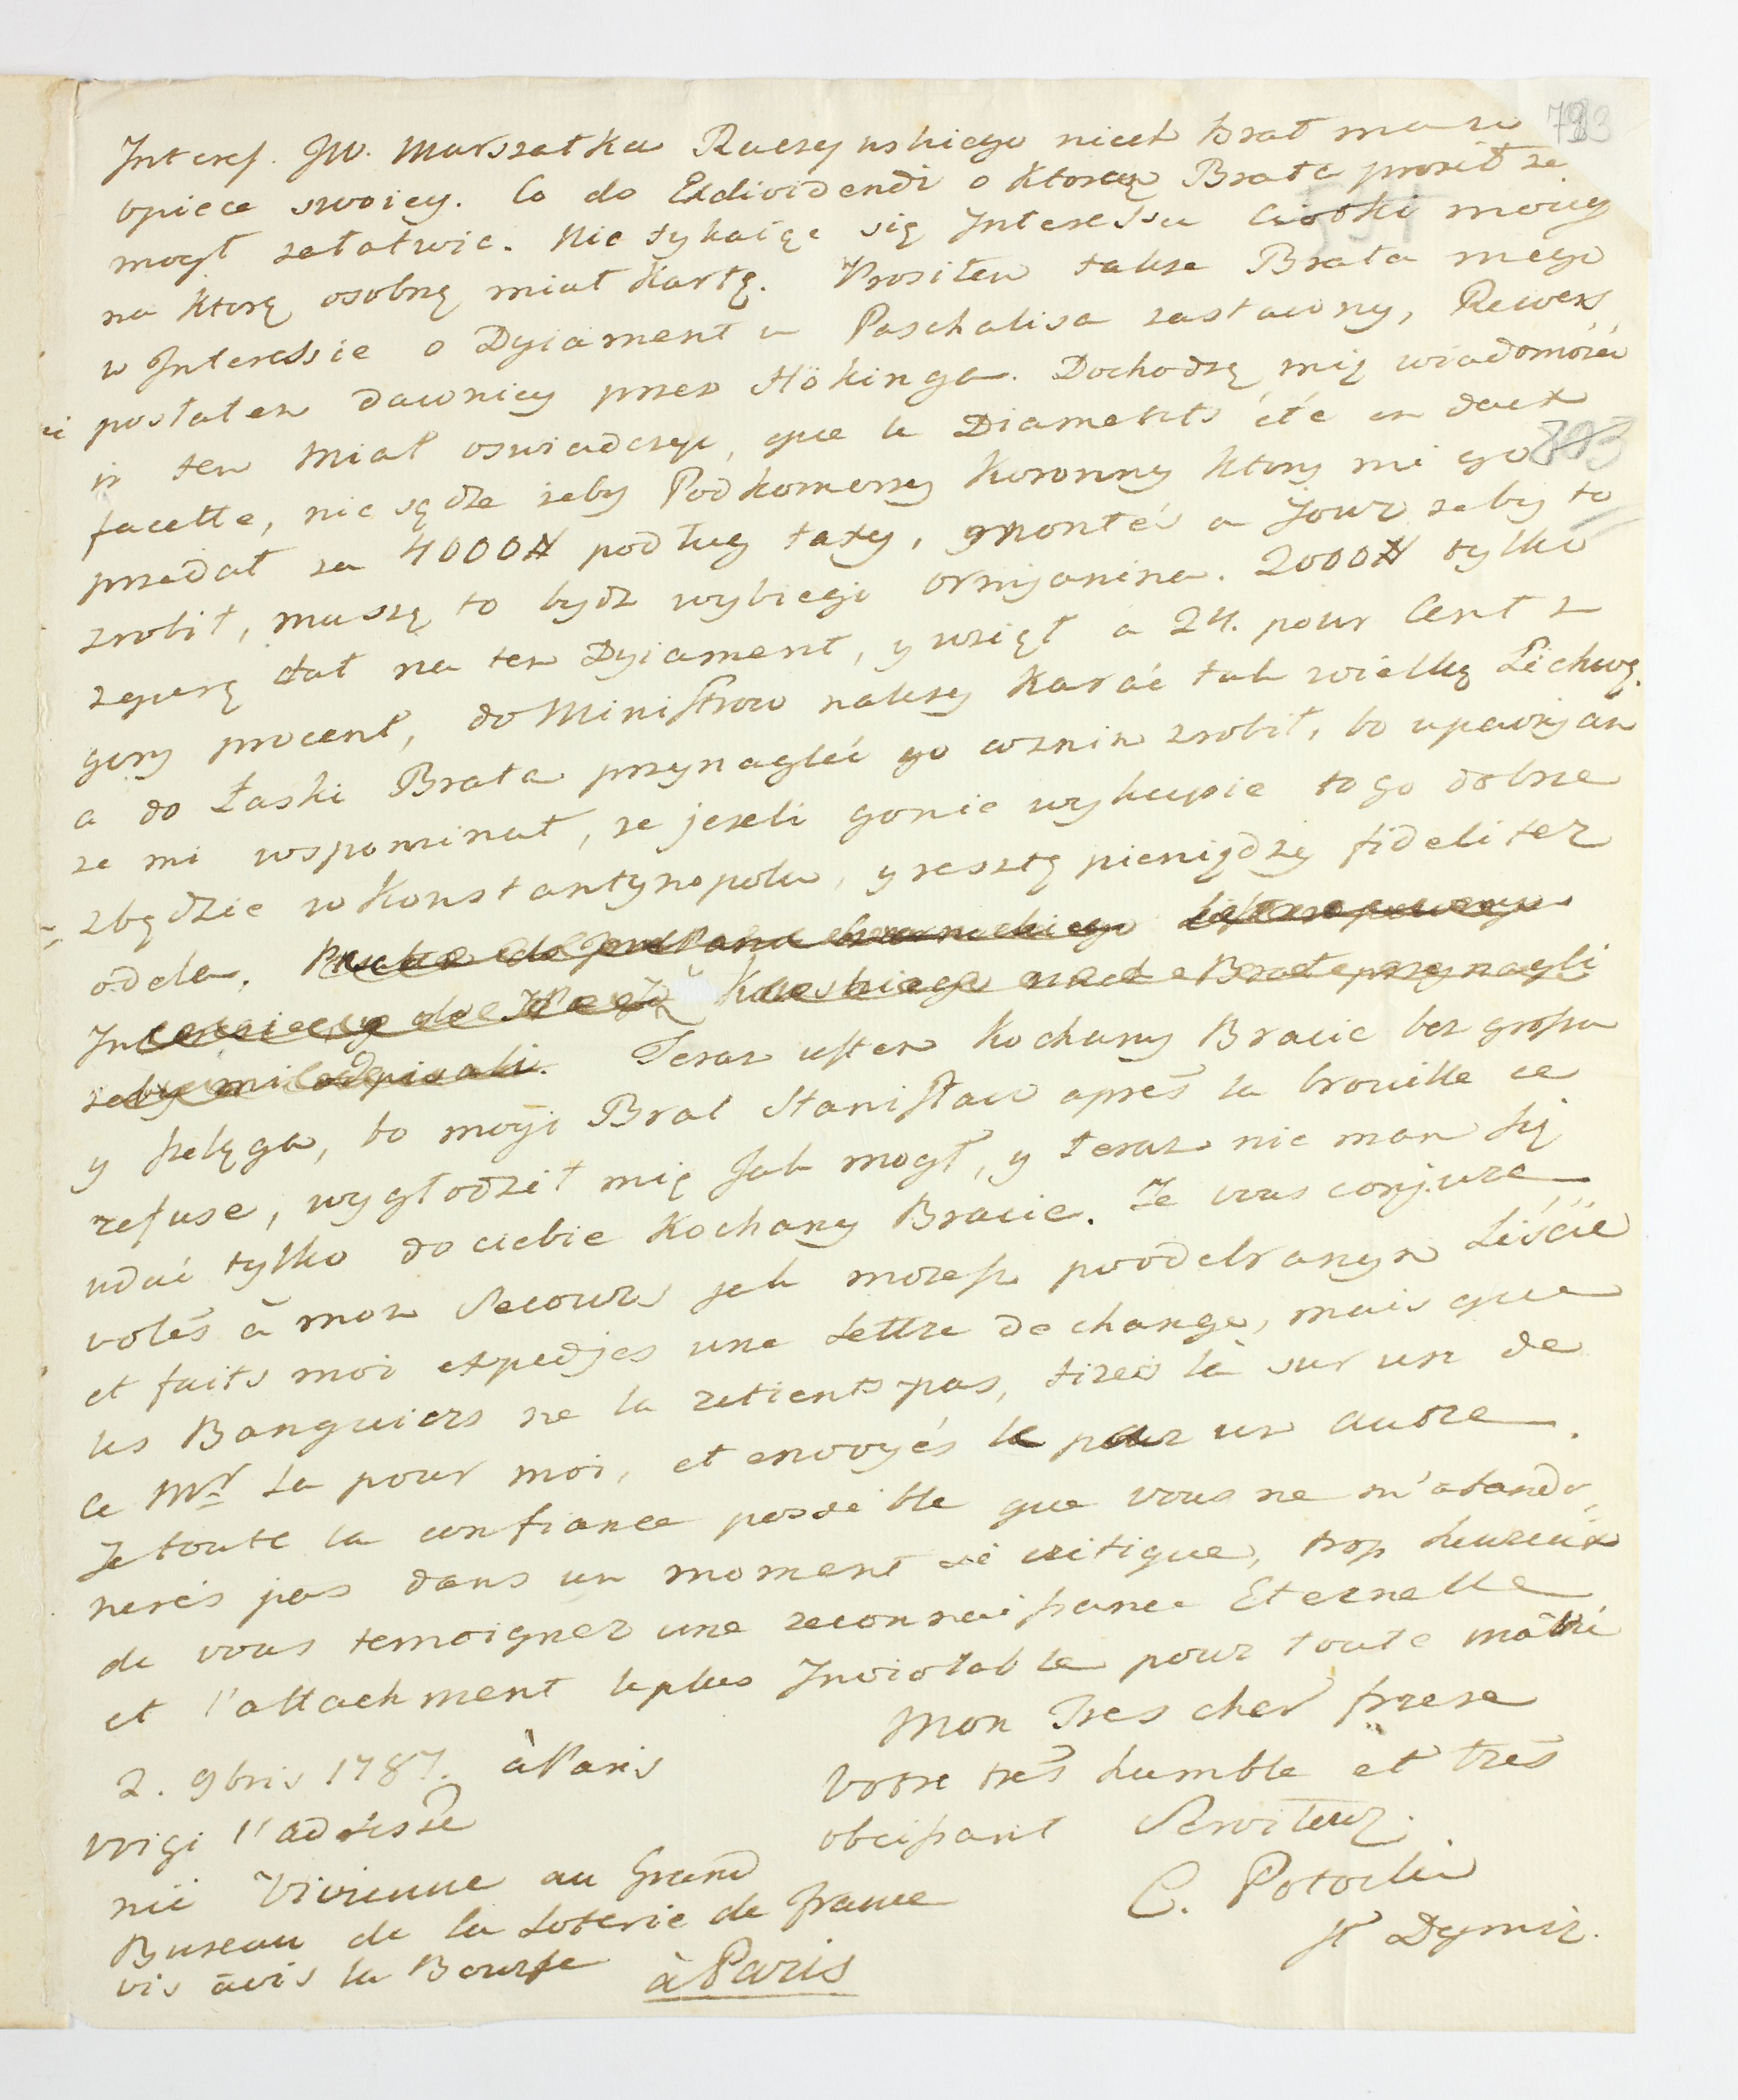 793
Interes. JW. Marszałka Raczynskiego niech Brat ma w
opiece swoiey. Co do Exdividendi o ktorą Brata prosił ze
mogł załatwic. Nie tykaiąc się Interessu Ciotki moiey
na ktorę osobnę miał kartę. Prosiłem takze Brata mego
w Interessie o Dyiament u Paschalisa zastawny, Rewers
posłałem dawniey przez Hökinga. Dochodzę mię wiadomości
iz ten miał oswiadczyc, que le Diaments été en deux
803
facette, nie sądze zeby Podkomorzy Koronny ktory mi go
przedał za 4000# podług taxy, montés a Jour zeby to
zrobił, muszę to bydz wybiegi ormjanina. 2000# tylko
zgurę dał na ten Dyiament, y wziął a 24. pour Cent z
gury procent, do Ministrow nalezy karać tak wielkę Lichwę.
a do Łaski Brata przynaglić go coznim zrobił, bo upewnjam
ze mi wspominał, ze jezeli gonie wykupie to go dobrze
zbędzie w Konstantynopolu, y resztę pieniędzy fideliter
odda.
zeby mi odpisali. Teraz iestem Kochany Bracie bez grosza
y szelęga, bo moyi Brat Stanisław aprés la brouille ce
refuse, wygłodził mię Jak mogł, y teraz nie mam się
udać tylko do ciebie Kochany Bracie. Je vous conjure
volés à mon Secours jak mozesz poodebranym Liście
et faits moi expedjes une Lettre de change, mais que
les Banguiers ne la retients pas, tireś la sur un de
ce Mr La pour moi, et envoyés le par un autre.
Je toute la confiance possible que vous ne m'abando,
nerés pas dans un moment si critique, trop heureux
de vous temoigner une reconnaissance Eternelle
et l'attachment leplus Inviolable pour toute
Mon Tres cher frere
2. 9bris 1787. à Paris
Votre trés humble et trés
obeissant Serviteur.
C. Potocki
vrigi l'adresse
rüë Vivienne au Grand
Bureau de la Loterie de france
vis àvis la Bourse à Paris